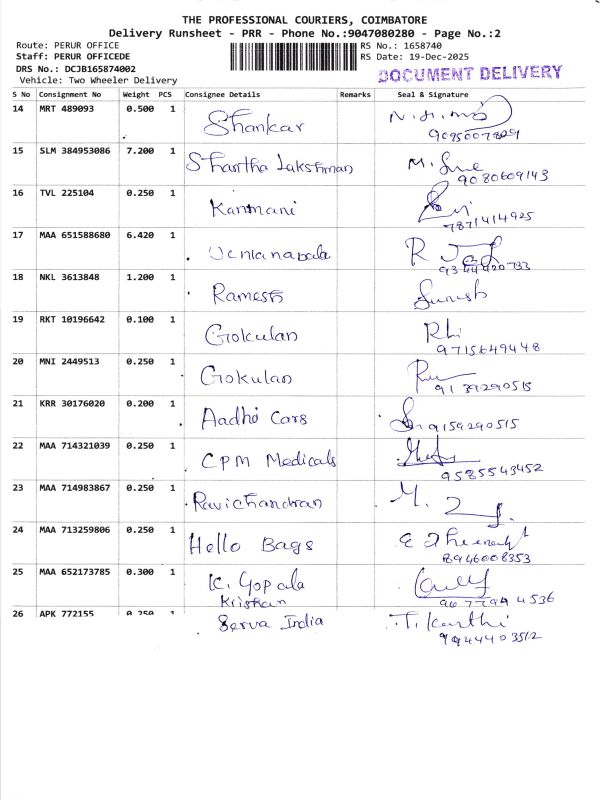 THE PROFESSIONAL COURIERS, COIMBATORE
Delivery Runsheet - PRR - Phone No.:9047080280 - Page No.:2
Route: PERUR OFFICE RS No.: 1658740
Staff: PERUR OFFICEDE RS Date: 19-Dec-2025
DRS No.: DCJB165874002 DOCUMENT DELIVERY
Vehicle: Two Wheeler Delivery
S No Consignment No Weight PCS Consignee Details Remarks Seal & Signature
14 MRT 489093 0.500 1 Shankar
9095007809
15 SLM 384953086 7.200 1 Shastha Lakshman M.
9080609143
16 TVL 225104 0.250 1 Kanmani
7871414925
17 MAA 651588680 6.420 1 R
9344420733
18 NKL 3613848 1.200 1 Ramesh Suresh
19 RKT 10196642 0.100 1 Gokulan
9715649448
20 MNI 2449513 0.250 1 Gokulan
9139290515
21 KRR 30176020 0.200 1 Aadhi Cars 9159290515
22 MAA 714321039 0.250 1 CPM Medicals
9585543452
23 MAA 714983867 0.250 1 Ravichandran M.
24 MAA 713259806 0.250 1 Hello Bags
8946008353
25 MAA 652173785 0.300 1 K. Gopala
Krishan 9677944536
26 APK 772155 0.250 1 Serva India T. Karthi
9944403512